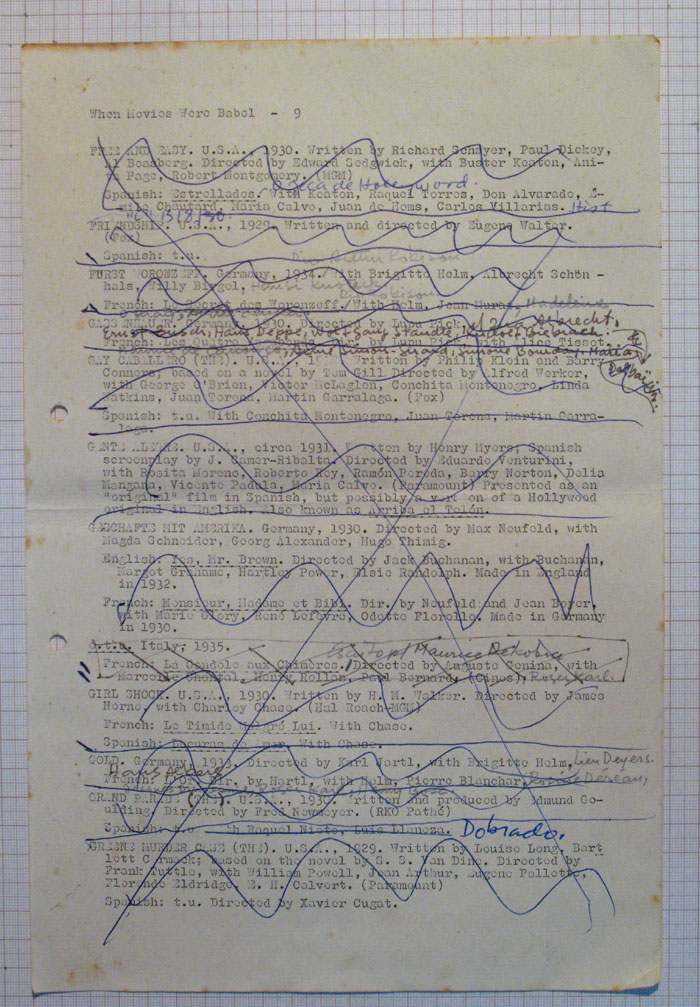 When Movies Were Babel - 9
FREE AND EASY. U.S.A., 1930. Written by Richard Schayer, Paul Dickey,
Al Boasberg. Directed by Edward Sedgwick, with Buster Keaton, Ani-
ta Page, Robert Montgomery. (MGM)
de Hollywood.
Spanish: Estrellados. With Keaton, Raquel Torres, Don Alvarado, E-
milo Chautard, Maria Calvo, Juan de Homs, Carlos Villarias. Hist
FRIENDSHIP. U.S.A., 1929. Written and directed by Eugene Walter.
(Fox)
Spanish: t.u.
FURST WORONZEFF. Germany, 1934. With Brigitte Helm, Albrecht Schön -
hals, Willy Birgel,
French: Le Secret des Woronzeff. With Helm, Jean Murat, Madeleine
GASSENHAUER. Germany, 1930. Directed by Lupu Pick
Albrecht.
Ernst Busch, Hans Deppe, Wolfgang Staudte,
French: Les Quatre by Lupu Pick, with Alice Tissot.
GAY CABALLERO (THE). U.S.A., Written by Philip Klein and Barry
Conners, based on a novel by Tom Gill Directed by Alfred Werker,
with George O'Brien, Victor McLaglen, Conchita Montenegro, Linda
Watkins, Juan Torena, Martin Garralaga. (Fox)
Spanish: t.u. With Conchita Montenegro, Juan Torena, Martin Garra-
laga.
GENTE ALEGRE. U.S.A., circa 1931. Written by Henry Myers, Spanish
screenplay by J. Carner-Ribalta. Directed by Eduardo Venturini,
with Rosita Moreno, Roberto Rey, Ramón Pereda, Barry Norton, Delia
Mangana, Vicente Padula, Maria Calvo. (Paramount) Presented as an
"original" film in Spanish, but possibly a version of a Hollywood
original in English. Also known as Arriba el Telón.
GESCHAFTS MIT AMERIKA. Germany, 1930. Directed by Max Neufeld, with
Magda Schneider, Georg Alexander, Hugo Thimig.
English: Yes, Mr. Brown. Directed by Jack Buchanan, with Buchanan,
Margot Grahame, Hartley Power, Elsie Randolph. Made in England
in 1932.
French: Monsieur, Madame et Bibi. Dir. by Neufeld and Jean Boyer,
with Marie Glory, René Lefèvre, Odette Florelle. Made in Germany
in 1930.
o.t.u. Italy, 1935. Maurice Dekobra
French: La Gondole aux Chimères. Directed by Augusto Genina, with
Marcelle Chantal, Henry Rollan, Paul Bernard. (Cines), Roger Karl.
GIRL SHOCK. U.S.A., 1930. Written by H. M. Walker. Directed by James
Horne, with Charley Chase. (Hal Roach-MGM)
French: Le Timide Malgré Lui. With Chase.
Spanish: Locuras de Amor. With Chase.
GOLD. Germany, 1933. Directed by Karl Hartl, with Brigitte Helm, Lien Deyers.
Hans Albers
French: Dir. by Hartl, with Helm, Pierre Blanchar, Rosine Deréan,
GRAND PARADE (THE). U.S.A., 1930. Written and produced by Edmund Go-
ulding. Directed by Fred Newmeyer. (RKO Pathé)
Spanish: t.u. With Raquel Nieto, Luis Llaneza. Doblado.
GREENE MURDER CASE (THE). U.S.A., 1929. Written by Louise Long, Bart
lett Cormack; based on the novel by S. S. Van Dine. Directed by
Frank Tuttle, with William Powell, Jean Arthur, Eugene Pallette,
Florence Eldridge, E. H. Calvert. (Paramount)
Spanish: t.u. Directed by Xavier Cugat.